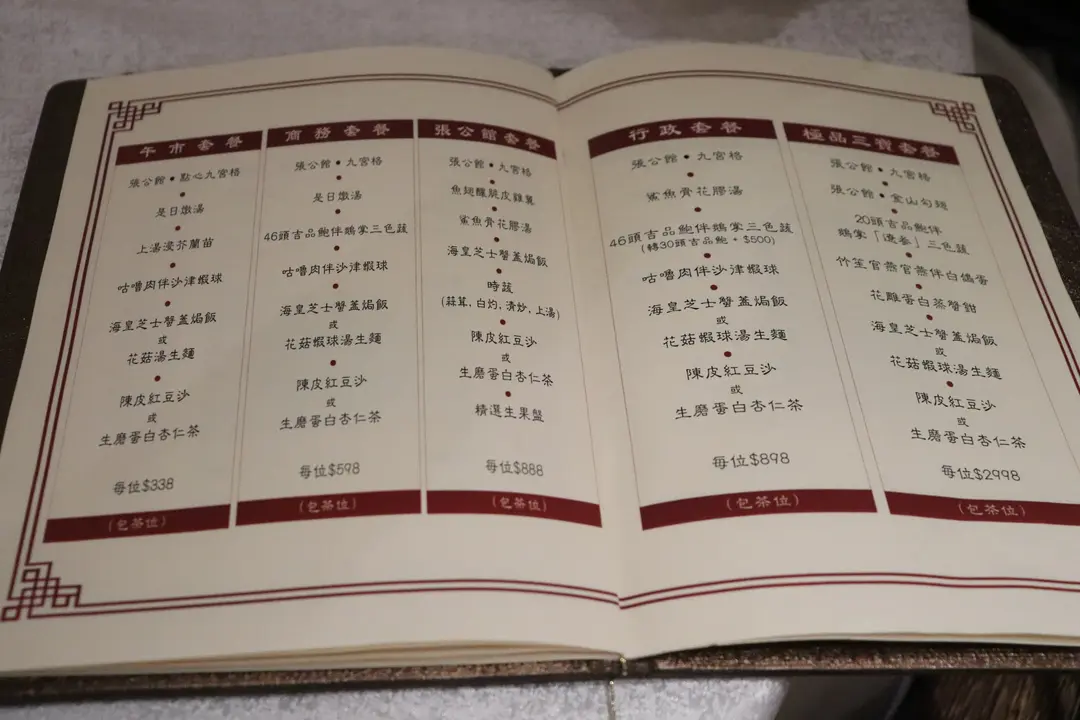 午市套餐
張公館•點心九宮格
是日燉湯
上湯浸芥蘭苗
咕嚕肉伴沙津蝦球
海皇芝士蟹蓋焗飯
或
花菇湯生麵
陳皮紅豆沙
或
生磨蛋白杏仁茶
每位$338
(包茶位)
商務套餐
張公館•九宮格
是日燉湯
46頭吉品鮑伴鵝掌三色蔬
咕嚕肉伴沙津蝦球
海皇芝士蟹蓋焗飯
或
花菇蝦球湯生麵
陳皮紅豆沙
或
生磨蛋白杏仁茶
每位$598
(包茶位)
張公館套餐
張公館•九宮格
魚翅釀脆皮雞翼
鯊魚骨花膠湯
海皇芝士蟹蓋焗飯
時蔬
(蒜茸, 白灼, 清炒, 上湯)
陳皮紅豆沙
或
生磨蛋白杏仁茶
精選生果盤
每位$888
(包茶位)
行政套餐
張公館•九宮格
鯊魚骨花膠湯
46頭吉品鮑伴鵝掌三色蔬
(轉30頭吉品鮑 + $500)
咕嚕肉伴沙津蝦球
海皇芝士蟹蓋焗飯
或
花菇蝦球湯生麵
陳皮紅豆沙
或
生磨蛋白杏仁茶
每位$898
(包茶位)
極品三寶套餐
張公館•九宮格
張公館•金山勾翅
20頭吉品鮑伴
鵝掌「遼參」三色蔬
竹笙官燕官燕伴白鴿蛋
花雕蛋白蒸蟹鉗
海皇芝士蟹蓋焗飯
或
花菇蝦球湯生麵
陳皮紅豆沙
或
生磨蛋白杏仁茶
每位$2998
(包茶位)